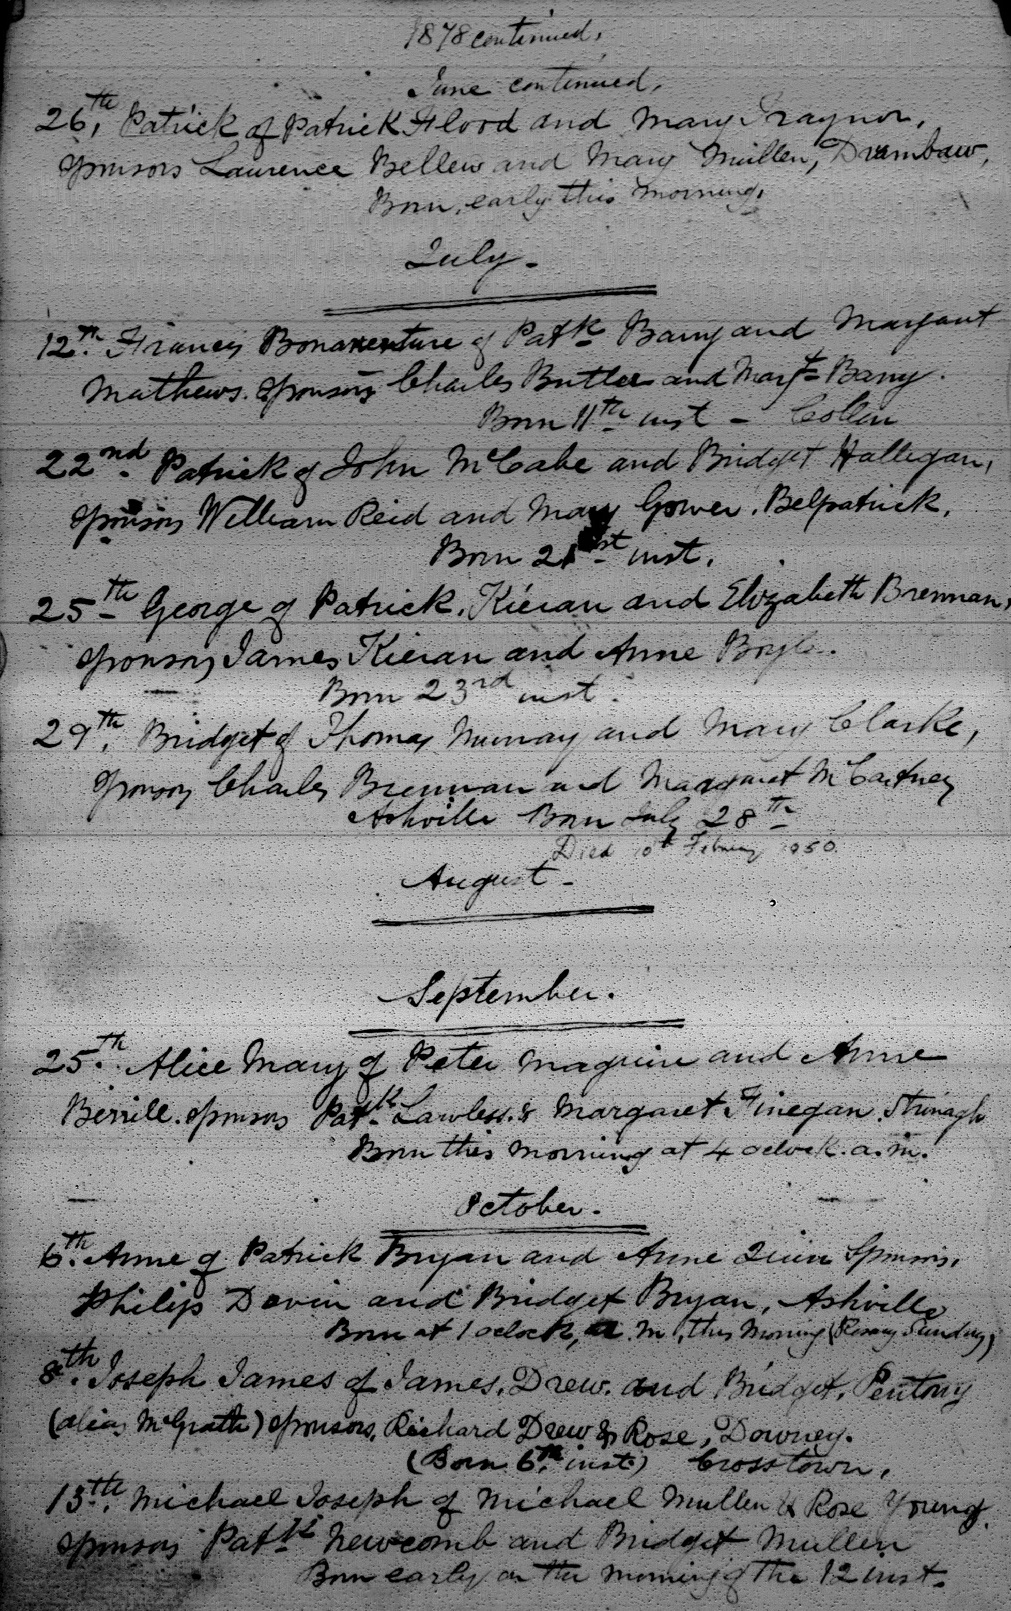 1878 continued.
June continued.
26th, Patrick of Patrick Flood and Mary Traynor,
sponsors Laurence Bellew and Mary Mullen, Drumbaw,
Born, early this morning.
July.
12th. Francis Bonaventure of Patk Barry and Margaret
Mathews. sponsors Charles Butler and Margt Barry.
Born 11th inst - Collon
22nd. Patrick of John McCabe and Bridget Halligan,
sponsors William Reid and Mary Gower. Belpatrick.
Born 21st inst.
25th George of Patrick, Kieran and Elizabeth Brennan,
sponsors James Kieran and Anne Boyle.
Born 23rd inst.
29th. Bridget of Thomas Murray and Mary Clarke,
sponsors Charles Brennan and Margaret McCartney
Ashville Born July 28th
Died 10th February 1950.
August -
September.
25th. Alice Mary of Peter Maguire and Anne
Berrill. sponsors Patk Lawless. & Margaret Finegan.
Born this morning at 4 oclock. a.m.
October.
6th. Anne of Patrick Bryan and Anne Quinn Sponsors,
Philip Devin and Bridget Bryan, Ashville
Born at 1 oclock, a.m, this morning (Rosary Sunday)
8th. Joseph James of James, Drew. and Bridget. Pentony
(alias McGrath) sponsors, Richard Drew & Rose, Downey.
(Born 6th inst) Crosstown,
13th. Michael Joseph of Michael Mullen & Rose Young.
sponsors Patk Newcomb and Bridget Mullen
Born early on the morning of the 12 inst.